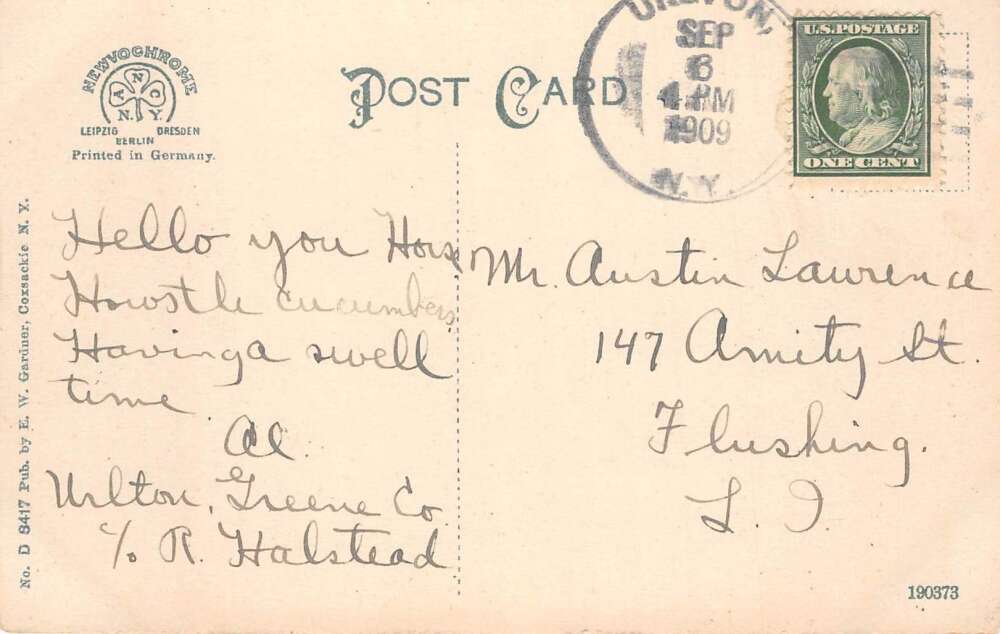 NEWVOCHROME
A N C
N.Y.
LEIPZIG DRESDEN
BERLIN
Printed in Germany.
POST CARD
SEP
6
PM
1909
N.Y.
U.S. POSTAGE
ONE CENT
No. D 8417 Pub. by E. W. Gardiner, Coxsackie N. Y.
Hello you
cucumbers
Having a swell
time.
Al.
Urlton, Greene Co
c/o R. Halstead
Mr. Austin Lawrence
147 Amity St.
Flushing.
L. I.
190373